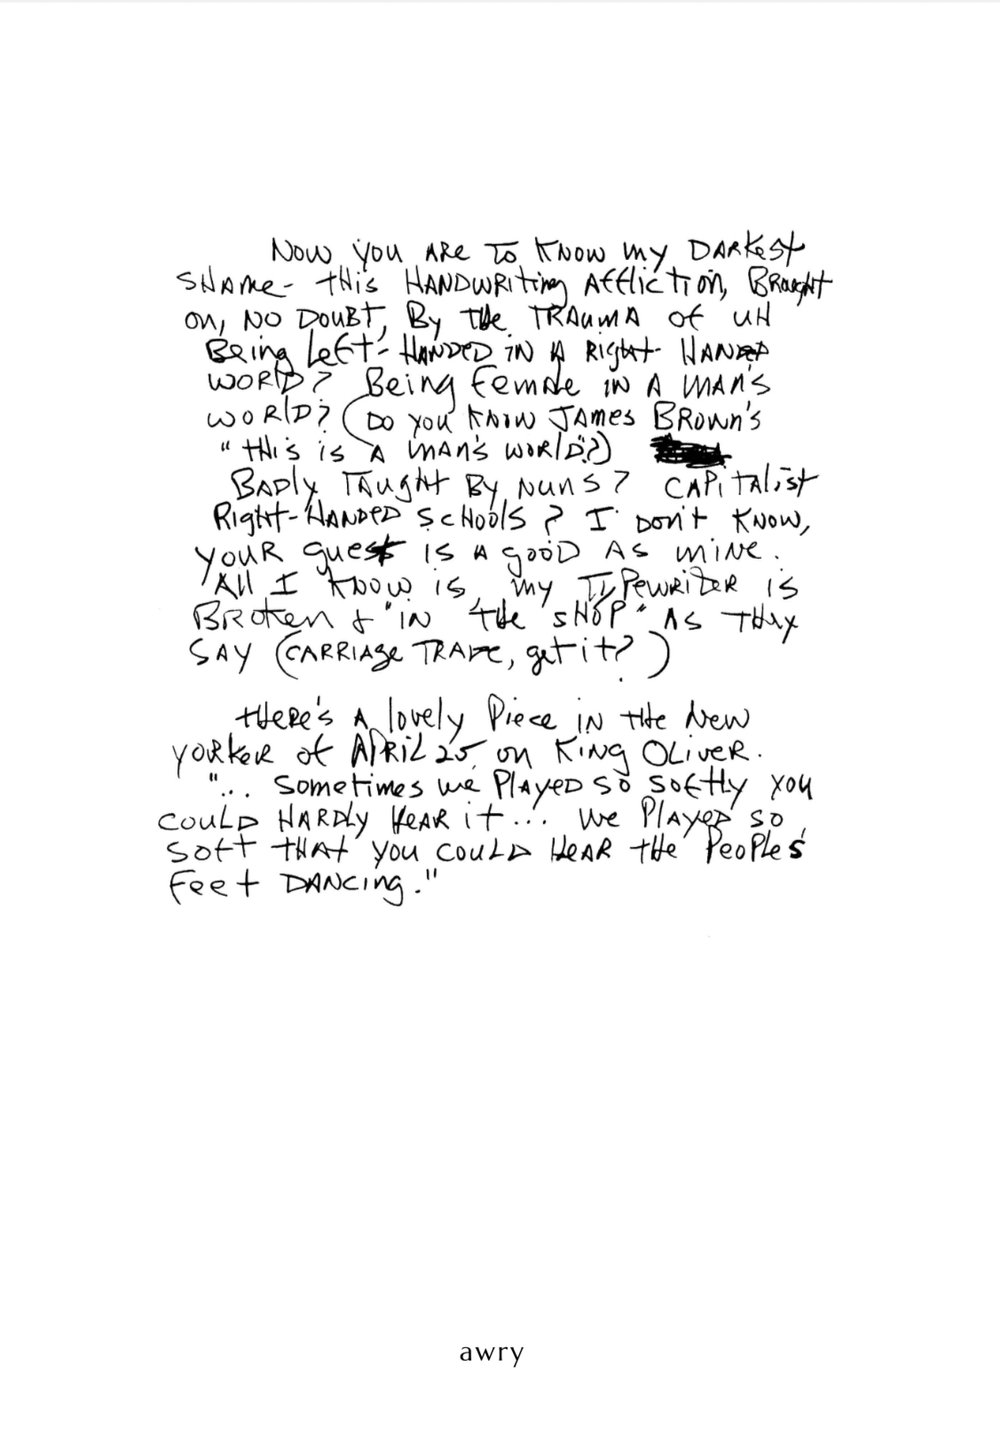 Now you are to know my darkest
shame - this handwriting affliction, brought
on, no doubt, by the trauma of uh
being left-handed in a right-handed
world? Being female in a man's
world? (Do you know James Brown's
"This is a man's world"?)
Badly taught by nuns? Capitalist
right-handed schools? I don't know,
your guest is a good as mine.
All I know is, my typewriter is
broken & "in the shop" as they
say (carriage trade, get it?)
There's a lovely piece in the New
Yorker of April 25 on King Oliver.
"... Sometimes we played so softly you
could hardly hear it... we played so
soft that you could hear the people's
feet dancing."
awry